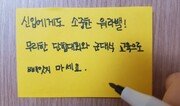 신입에게도 소중한 워라밸!
무리한 단합대회와 군대식 교육으로
빼앗지 마세요.